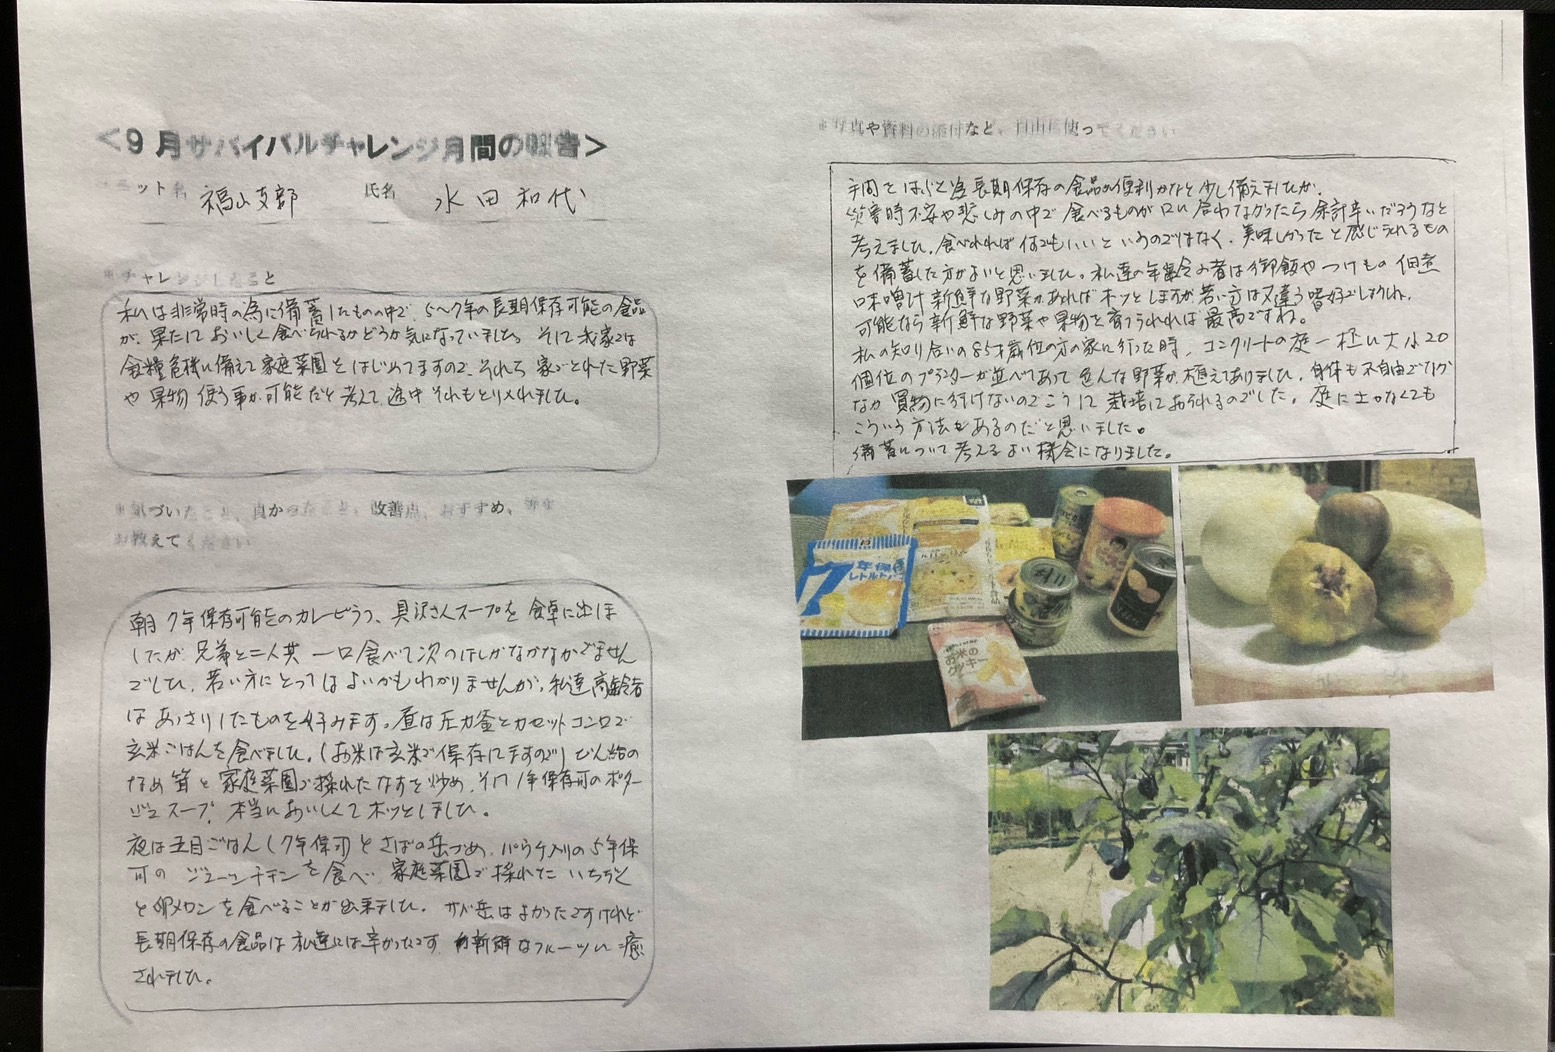 <9月サバイバルチャレンジ月間の報告>
ユニット名 福山支部 氏名 水田和代
*チャレンジしたこと
私は非常時の為に備蓄したものの中で、5～7年の長期保存可能の食品
が、果たしておいしく食べられるかどうか気になっていました。そして我家では
食糧危機に備えて家庭菜園をはじめてますので、それら家でとれた野菜
や果物使う事が可能だと考えて、途中それもとり入れました。
*気づいたこと、良かったこと、改善点、おすすめ、等を
お教えてください
朝 7年保存可能のカレーピラフ、具沢さんスープを食卓に出しま
したが 兄弟と二人共 一口食べて次のはしがなかなかでません
でした。若い方にとってはよいかもわかりませんが、私達高齢者
はあっさりしたものを好みます。昼は圧力釜とカセットコンロで
玄米ごはんを食べました。(お米は玄米で保存してますので)びん詰の
なめ茸と家庭菜園で採れたなすを炒め、そして1年保存可のポター
ジュスープ、本当においしくてホッとしました。
夜は五目ごはん(7年保可)とさばの缶づめ、パウチ入りの5年保
可の ジューシーチキンを食べ、家庭菜園で採れた いちぢく
と卵メロンを食べることが出来ました。サバ缶はよかったですけれど
長期保存の食品は私達には辛かったです 新鮮なフルーツに癒
されました。
*写真や資料の添付など、自由に使ってください
手間をはぶく為長期保存の食品が便利かなと少し備えましたが、
災害時不安や悲しみの中で食べるものが口に合わなかったら余計辛いだろうなと
考えました。食べれれば何でもいいというのではなく、美味しかったと感じられるもの
を備蓄した方がよいと思いました。私達の年齢の者は御飯やつけもの 佃煮
味噌汁 新鮮な野菜があればホッとしますが若い方は又違う嗜好でしょうしね。
可能なら新鮮な野菜や果物を育てられれば最高ですね。
私の知り合いの85才歳位の方の家に行った時、コンクリートの庭一杯に大小20
個位のプランターが並べてあって色んな野菜が植えてありました。身体も不自由でなか
なか買物に行けないのでこうして栽培しておられるのでした。庭に土がなくても
こういう方法もあるのだと思いました。
備蓄について考えるよい機会になりました。
7年保存
レトルト
お米の
クッキー